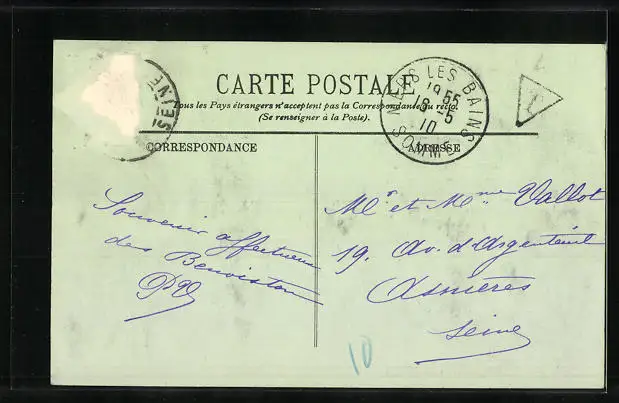 SEINE
CARTE POSTALE
Tous les Pays étrangers n'acceptent pas la Correspondance au recto.
(Se renseigner à la Poste).
MERS LES BAINS
18-5
10
SOMME
CORRESPONDANCE
ADRESSE
Souvenir affectueux
des Benoiston
Mr et Mme Vallot
19. Av. d'Argenteuil
Asnières
Seine
10